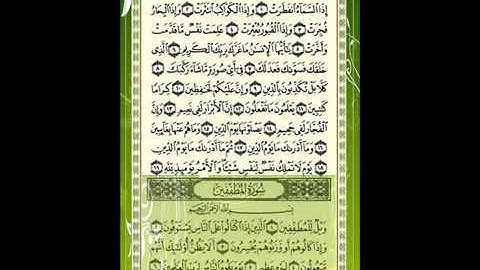 إِذَا السَّمَاءُ انفَطَرَتْ ١ وَإِذَا الْكَوَاكِبُ انتَثَرَتْ ٢ وَإِذَا الْبِحَارُ
فُجِّرَتْ ٣ وَإِذَا الْقُبُورُ بُعْثِرَتْ ٤ عَلِمَتْ نَفْسٌ مَّا قَدَّمَتْ
وَأَخَّرَتْ ٥ يَا أَيُّهَا الْإِنسَانُ مَا غَرَّكَ بِرَبِّكَ الْكَرِيمِ ٦ الَّذِي
خَلَقَكَ فَسَوَّاكَ فَعَدَلَكَ ٧ فِي أَيِّ صُورَةٍ مَّا شَاءَ رَكَّبَكَ ٨
كَلَّا بَلْ تُكَذِّبُونَ بِالدِّينِ ٩ وَإِنَّ عَلَيْكُمْ لَحَافِظِينَ ١٠ كِرَامًا
كَاتِبِينَ ١١ يَعْلَمُونَ مَا تَفْعَلُونَ ١٢ إِنَّ الْأَبْرَارَ لَفِي نَعِيمٍ ١٣ وَإِنَّ
الْفُجَّارَ لَفِي جَحِيمٍ ١٤ يَصْلَوْنَهَا يَوْمَ الدِّينِ ١٥ وَمَا هُمْ عَنْهَا بِغَائِبِينَ
١٦ وَمَا أَدْرَاكَ مَا يَوْمُ الدِّينِ ١٧ ثُمَّ مَا أَدْرَاكَ مَا يَوْمُ الدِّينِ
١٨ يَوْمَ لَا تَمْلِكُ نَفْسٌ لِّنَفْسٍ شَيْئًا وَالْأَمْرُ يَوْمَئِذٍ لِّلَّهِ ١٩
سُورَةُ الْمُطَفِّفِينَ
بِسْمِ اللَّهِ الرَّحْمَٰنِ الرَّحِيمِ
وَيْلٌ لِّلْمُطَفِّفِينَ ١ الَّذِينَ إِذَا اكْتَالُوا عَلَى النَّاسِ يَسْتَوْفُونَ ٢
وَإِذَا كَالُوهُمْ أَو وَّزَنُوهُمْ يُخْسِرُونَ ٣ أَلَا يَظُنُّ أُولَٰئِكَ أَنَّهُم